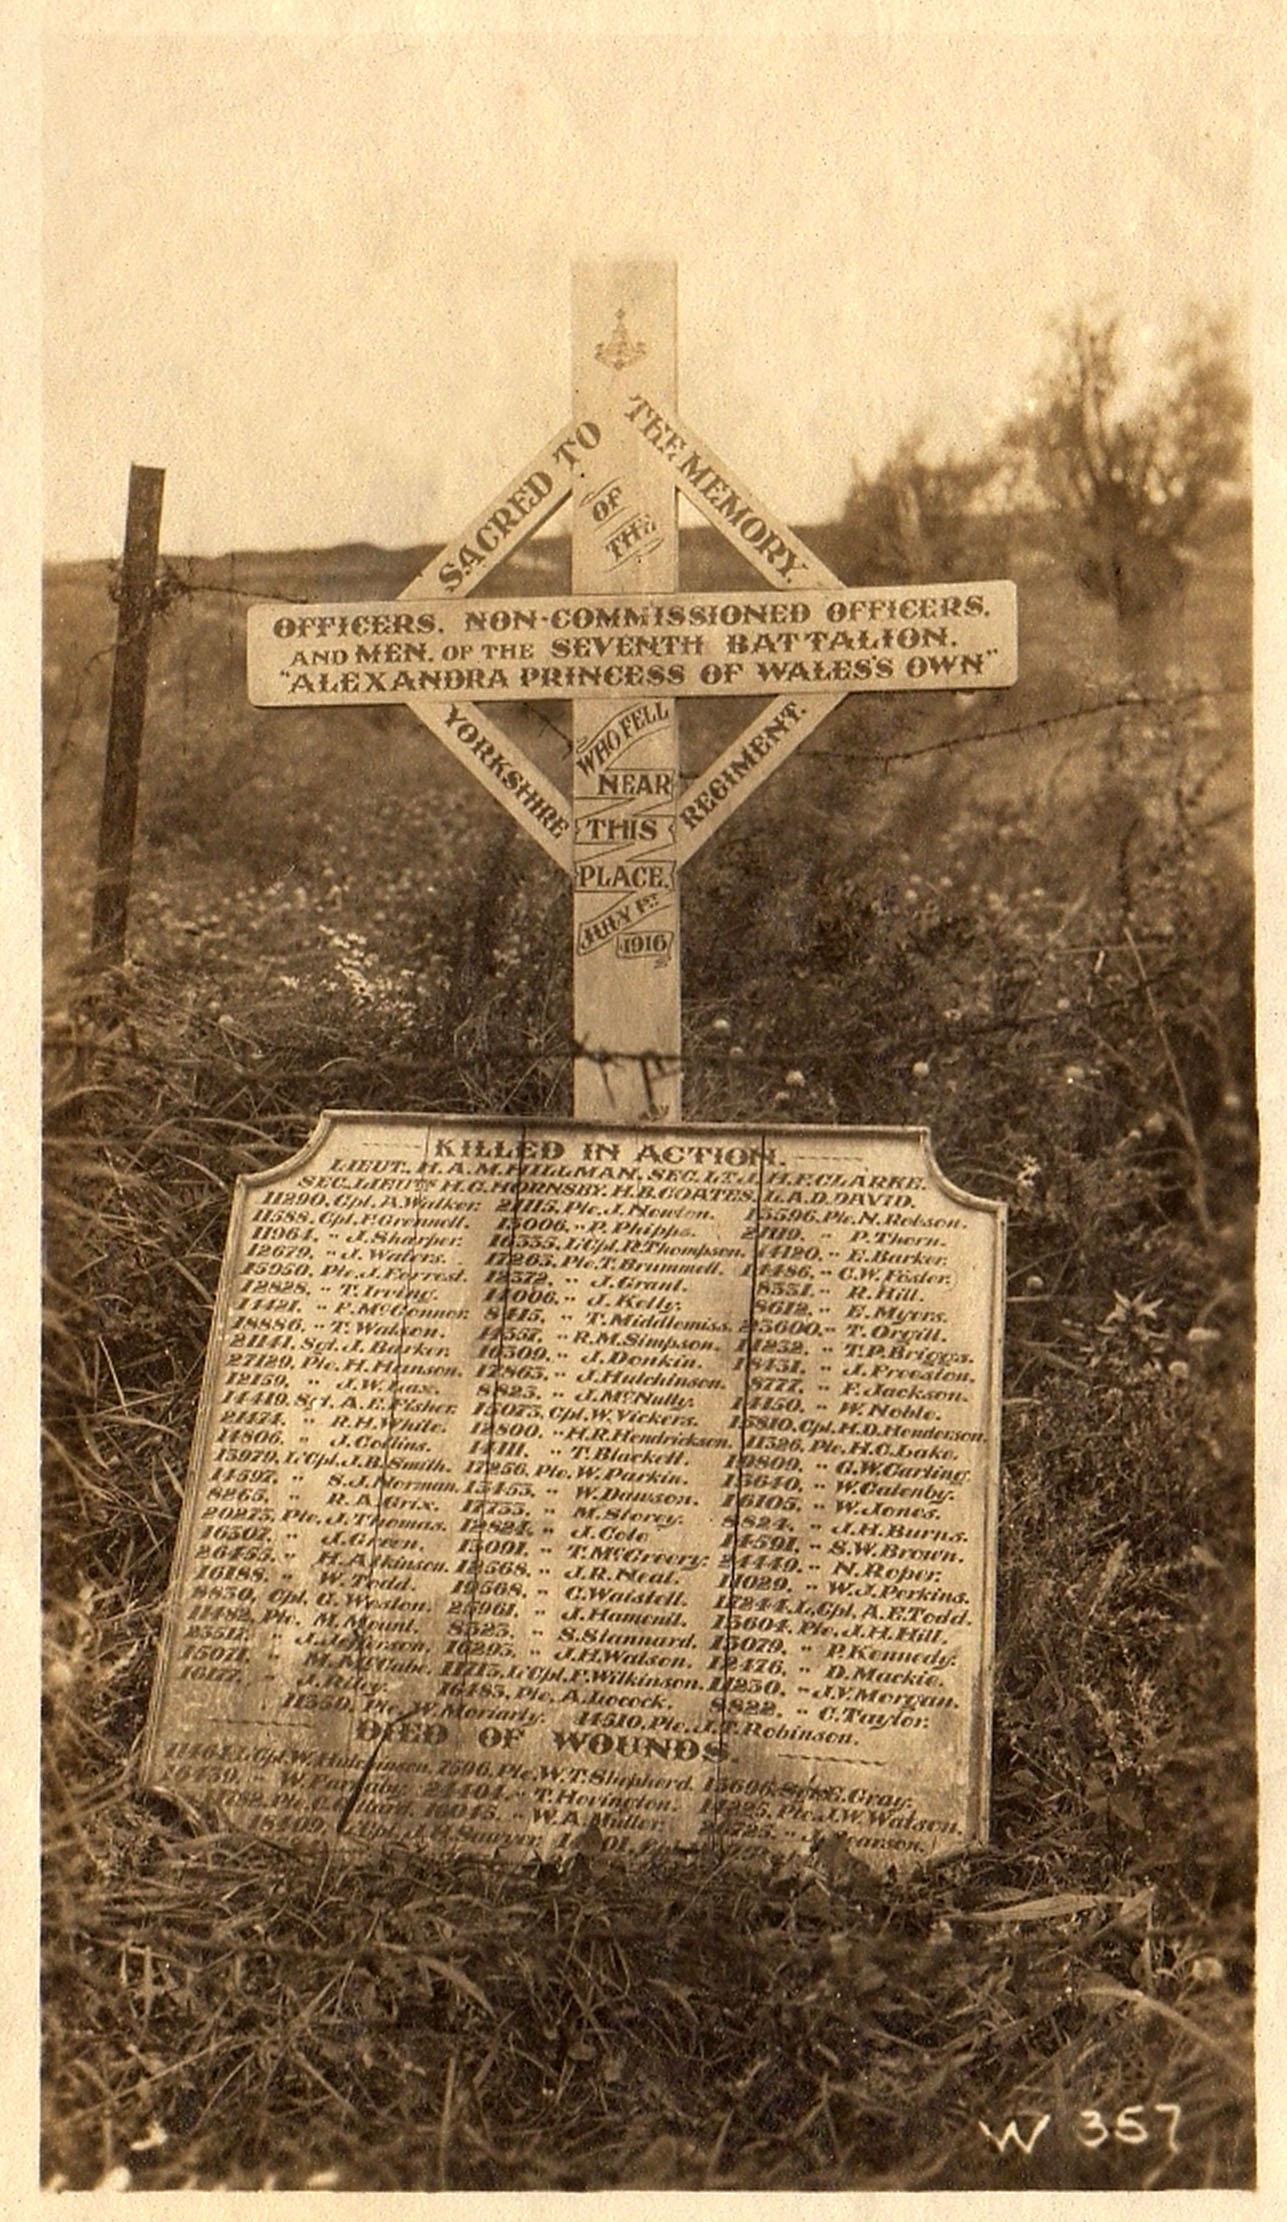 SACRED TO THE MEMORY.
OF
THE
OFFICERS. NON-COMMISSIONED OFFICERS.
AND MEN. OF THE SEVENTH BATTALION.
"ALEXANDRA PRINCESS OF WALES'S OWN"
YORKSHIRE REGIMENT.
WHO FELL
NEAR
THIS
PLACE.
JULY 1ST
1916
KILLED IN ACTION.
LIEUT. H.A.M. HILLMAN. SEC. LT. J.H.F. CLARKE.
SEC. LIEUTS H.G. HORNSBY. H.B. COATES. L.A.D. DAVID.
11290. Cpl. A. Walker. 21115. Pte. J. Newton. 15596. Pte. N. Robson.
11588. Cpl. F. Grennell. 15006. " P. Phipps. 21119. " P. Thorn.
11964. " J. Sharper. 16555. L/Cpl. R. Thompson. 14120. " E. Barker.
12679. " J. Waters. 17265. Pte. T. Brummell. 14486. " C.W. Foster.
15950. Pte. J. Forrest. 12572. " J. Grant. 8551. " R. Hill.
12828. " T. Irving. 14006. " J. Kelly. 8612. " E. Myers.
14421. " F. McConnor. 8415. " T. Middlemiss. 25600. " T. Orgill.
18886. " T. Watson. 14557. " R.M. Simpson. 11252. " T.P. Briggs.
21141. Sgt. J. Barker. 16509. " J. Donkin. 18451. " J. Freeston.
27129. Pte. H. Hanson. 17865. " J. Hutchinson. 8777. " F. Jackson.
12159. " J.W. Lax. 8825. " J. McNully. 14450. " W. Noble.
14419. Sgt. A.E. Fisher. 15075. Cpl. W. Vickers. 15810. Cpl. H.D. Henderson.
21474. " R.H. White. 12800. " H.R. Hendrickson. 11526. Pte. H.C. Lake.
14806. " J. Collins. 14111. " T. Blackett. 19809. " G.W. Carling.
15979. L/Cpl. J.B. Smith. 17256. Pte. W. Parkin. 15640. " W. Catenby.
14597. " S.J. Norman. 15455. " W. Dawson. 16105. " W. Jones.
8265. " R.A. Grix. 17755. " M. Storey. 8824. " J.H. Burns.
20275. Pte. J. Thomas. 12824. " J. Cole 14591. " S.W. Brown.
16507. " J. Green. 15091. " T. McCreery. 24449. " N. Roper.
26455. " H. Atkinson. 12568. " J.R. Neal. 11029. " W.J. Perkins.
16188. " W. Todd. 19568. " C. Waistell. 17244. L/Cpl. A.E. Todd.
8850. Cpl. G. Weston. 25961. " J. Hamenil. 15604. Pte. J.H. Hill.
11482. Pte. M. Mount. 8525. " S. Stannard. 15079. " P. Kennedy.
25517. " J. Jefferson. 16295. " J.H. Watson. 12476. " D. Mackie.
15071. " M. McCabe. 11715. L/Cpl. F. Wilkinson. 11250. " J.V. Morgan.
16177. " J. Riley. 16485. Pte. A. Locock. 8822. " C. Taylor.
11550. Pte. W. Moriarty. 14510. Pte. J.T. Robinson.
DIED OF WOUNDS.
L/Cpl. W. Hutchinson. 7596. Pte. W.T. Shepherd. 15696. G. Gray.
16439. " W. 24404. " T. Hovington. 14225. Pte. J.W. Watson.
Pte. C. 16045. " W.A. Muller. 26725. " J. Pearson.
18409. L/Cpl. J.H. Sawyer.
W 357